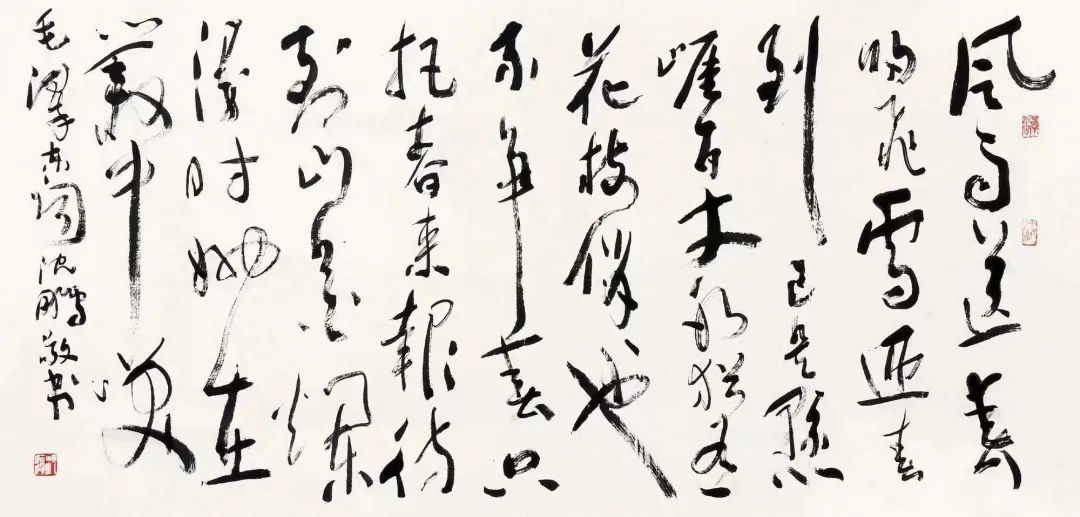 風雨送春
歸飛雪迎春
到已是懸
崖百丈冰猶有
花枝俏俏也
不爭春只
把春來報待
到山花爛
漫時她在
叢中笑
毛澤東詞沈鵬敬书